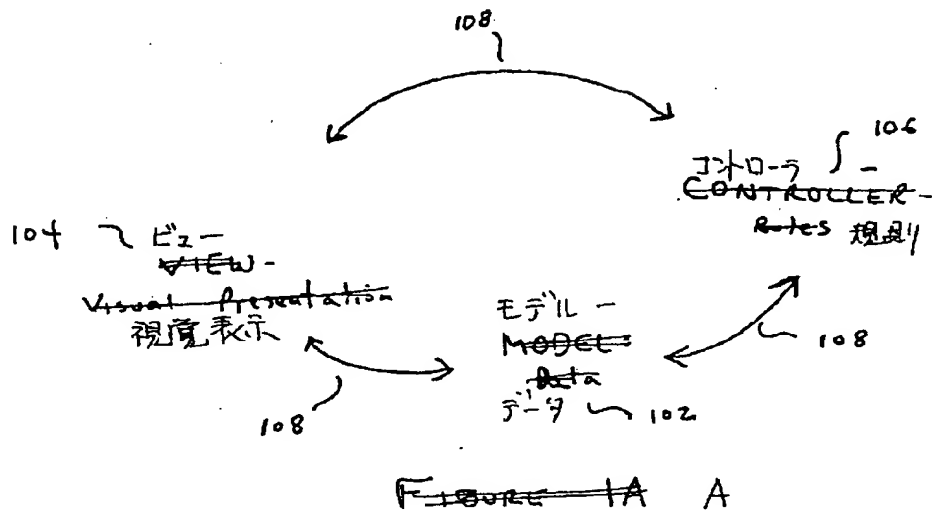 108
106
コントローラ -
CONTROLLER-
Rules 規則
104 ビュー
VIEW-
Visual Presentation
視覚表示
モデル -
MODEL-
Data
データ 102
108
108
FIGURE 1A A